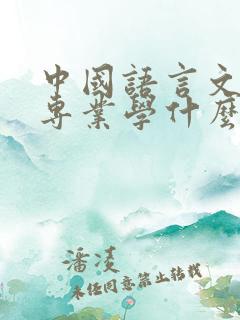 中國語言文
專業學什麼
潘凌
未經同意禁止轉載